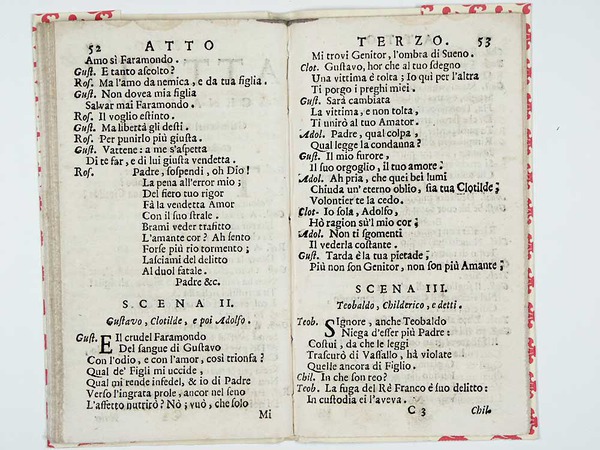 52 ATTO
Amo sì Faramondo.
Gust. E tanto ascolto?
Ros. Ma l'amo da nemica, e da tua figlia.
Gust. Non dovea mia figlia
Salvar mai Faramondo.
Ros. Il voglio estinto.
Gust. Ma libertà gli desti.
Ros. Per punirlo più giusta.
Gust. Vattene: a me s'aspetta
Di te far, e di lui giusta vendetta.
Ros. Padre, sospendi, oh Dio!
La pena all'error mio;
Del fiero tuo rigor
Fà la vendetta Amor
Con il suo strale.
Brami veder trafitto
L'amante cor? Ah sento
Forse più rio tormento;
Lasciami del delitto
Al duol fatale.
Padre &c.
SCENA II.
Gustavo, Clotilde, e poi Adolfo.
Gust. E Il crudel Faramondo
Del sangue di Gustavo
Con l'odio, e con l'amor, così trionfa?
Qual de' Figli mi uccide,
Qual mi rende infedel, & io di Padre
Verso l'ingrata prole, ancor nel seno
L'affetto nutrirò? Nò; vuò, che solo
Mi
TERZO. 53
Mi trovi Genitor, l'ombra di Sueno.
Clot. Gustavo, hor che al tuo sdegno
Una vittima è tolta; Io qui per l'altra
Ti porgo i preghi miei.
Gust. Sarà cambiata
La vittima, e non tolta,
Ti unirò al tuo Amator.
Adol. Padre, qual colpa,
Qual legge la condanna?
Gust. Il mio furore,
Il suo orgoglio, il tuo amore.
Adol. Ah pria, che quei bei lumi
Chiuda un'eterno oblio, sia tua Clotilde;
Volontier te la cedo.
Clot. Io sola, Adolfo,
Hò ragion sù'l mio cor;
Adol. Non ti sgomenti
Il vederla costante.
Gust. Tarda è la tua pietade;
Più non son Genitor, non son più Amante;
SCENA III.
Teobaldo, Childerico, e detti.
Teob. SIgnore, anche Teobaldo
Niega d'esser più Padre:
Costui, da che le leggi
Trascurò di Vassallo, hà violate
Quelle ancora di Figlio.
Chil. In che son reo?
Teob. La fuga del Rè Franco è suo delitto:
In custodia ei l'aveva.
C 3 Chil.